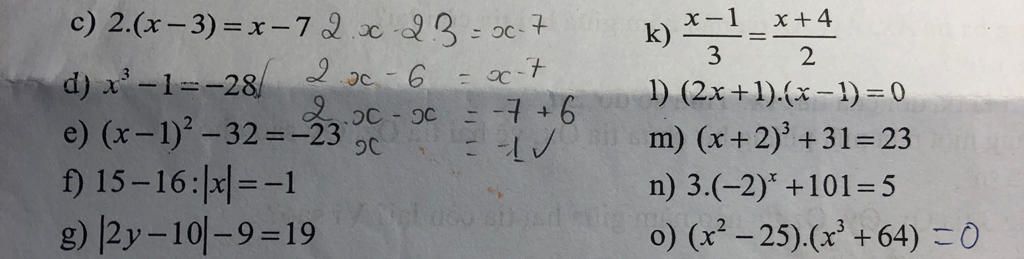 c) 2.(x−3)=x−7 2.x-2.3=x-7
2.x-6=x-7
d) x³−1=−28
2.x-x=-7+6
e) (x−1)²−32=−23
x=-1✓
f) 15−16:|x|=−1
g) |2y−10|−9=19
k) (x−1)/3=(x+4)/2
l) (2x+1).(x−1)=0
m) (x+2)³+31=23
n) 3.(−2)ˣ+101=5
o) (x²−25).(x³+64)=0